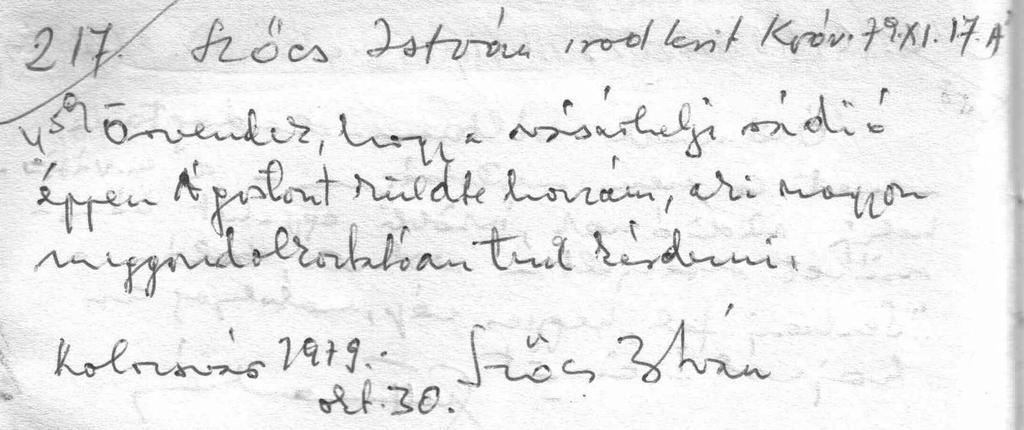 217. Szőcs István irod krit Kvár. 79. XI. 17. Á
Örvendek, hogy a vásárhelyi rádió
éppen Ágostont küldte hozzám, aki nagyon
meggondolkoztatóan tud kérdezni.
Kolozsvár 1979. Szőcs István
okt. 30.